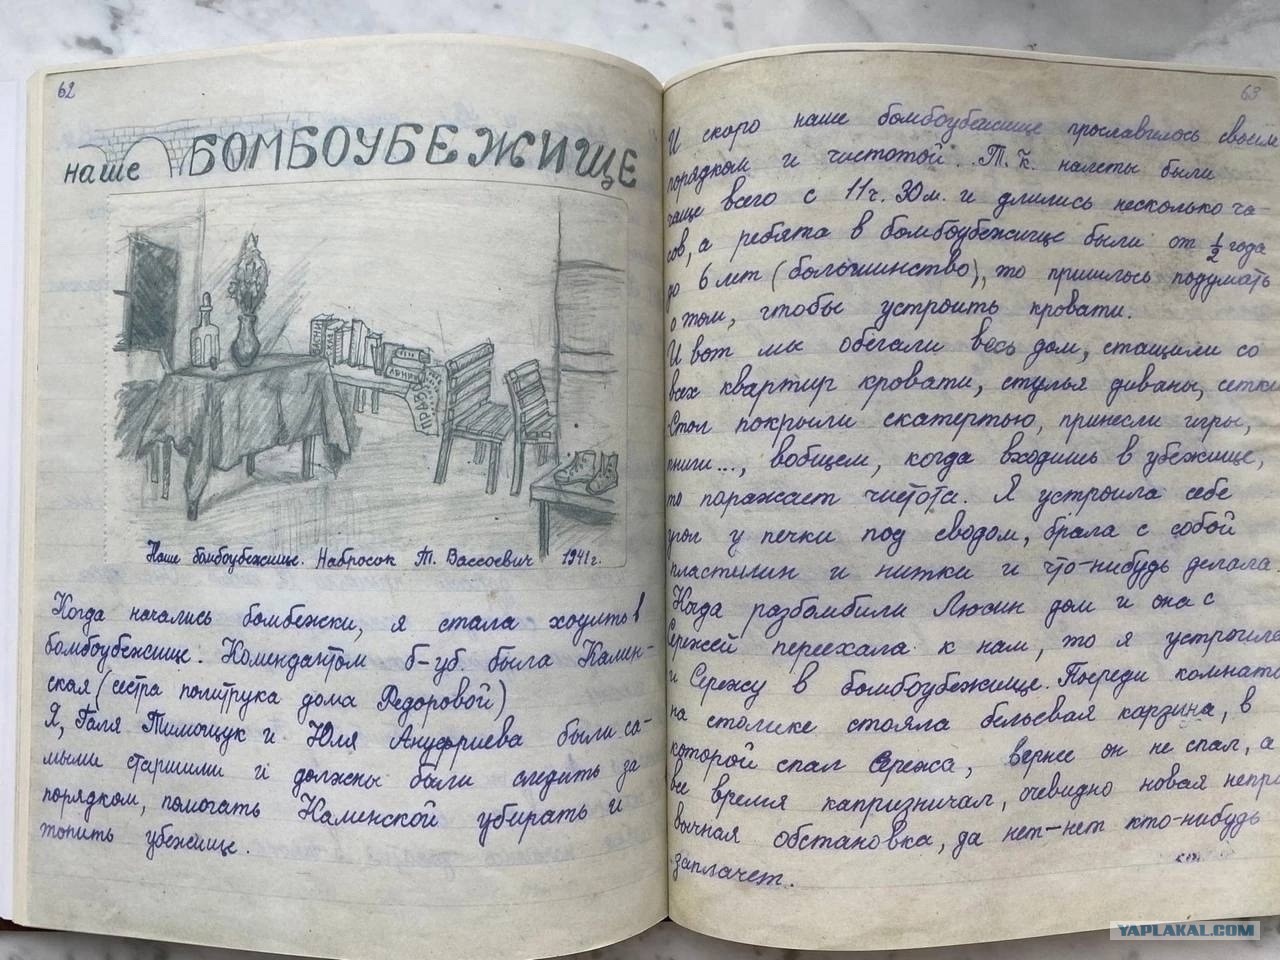 62
наше БОМБОУБЕЖИЩЕ
ПРАВДА
Наше бомбоубежище. Набросок Т. Вассоевич 1941г.
Когда начались бомбежки, я стала ходить в
бомбоубежище. Комендантом б-уб. была Камен-
ская (сестра политрука дома Федоровой)
Я, Галя Тимощук и Юля Ануфриева были са-
мыми старшими и должны были следить за
порядком, помогать Каменской убирать и
топить убежище.
63
И скоро наше бомбоубежище прославилось своим
порядком и чистотой. Т.к. налеты были
чаще всего с 11ч. 30м. и длились несколько ча-
сов, а ребята в бомбоубежище были от 1/2 года
до 6 лет (большинство), то пришлось подумать
о том, чтобы устроить кровати.
И вот мы обегали весь дом, стащили со
всех квартир кровати, стулья диваны, сетки
Стол покрыли скатертью, принесли игры,
книги..., вобщем, когда входишь в убежище,
то поражает чистота. Я устроила себе
угол у печки под сводом, брала с собой
пластилин и нитки и что-нибудь делала.
Когда разбомбили Люсин дом и она с
Сережей переехала к нам, то я устроила
и Сережу в бомбоубежище. Посреди комнаты
на столике стояла бельевая карзина, в
которой спал Сережа, вернее он не спал, а
все время капризничал, очевидно новая непри
вычная обстановка, да нет-нет кто-нибудь
заплачет.
YAPLAKAL.COM